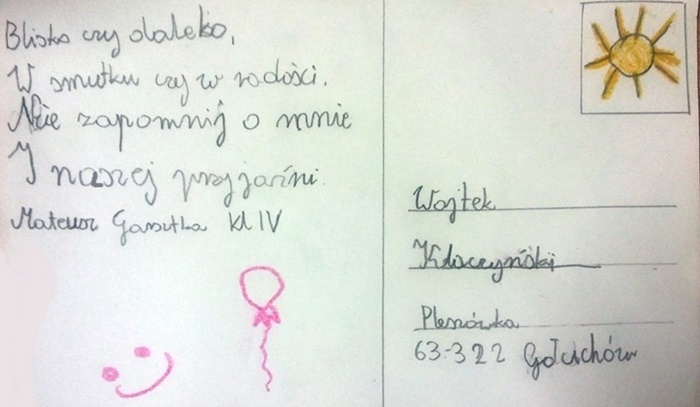 Blisko czy daleko,
W smutku czy w radości.
Nie zapomnij o mnie
I naszej przyjaźni.
Mateusz Gasztka kl IV
Wojtek
Kłoczyński
Pleszówka
63-322 Gołuchów